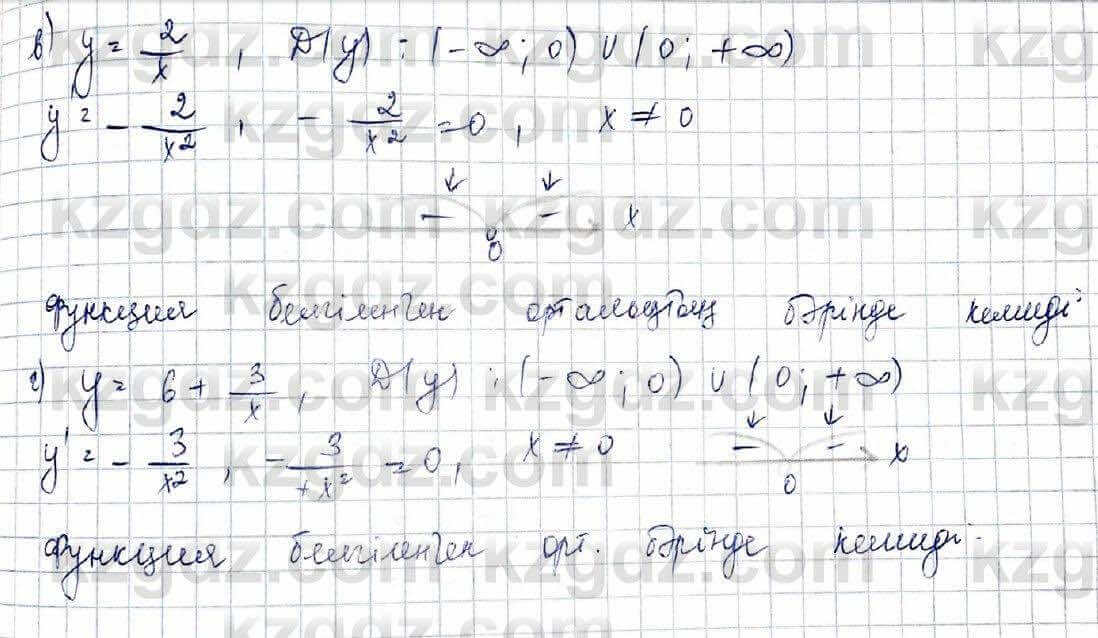 в) y = 2/x, D(y): (-∞; 0) ∪ (0; +∞)
y' = - 2/x², - 2/x² = 0, x ≠ 0
↓ ↓
- - x
0
Функция белгіленген орталықтың бәрінде кемиді.
г) y = 6 + 3/x, D(y): (-∞; 0) ∪ (0; +∞)
y' = - 3/x², - 3/+x² = 0, x ≠ 0 ↓ ↓
- - x
0
Функция белгіленген орт. бәрінде кемиді.
kzgdz.com